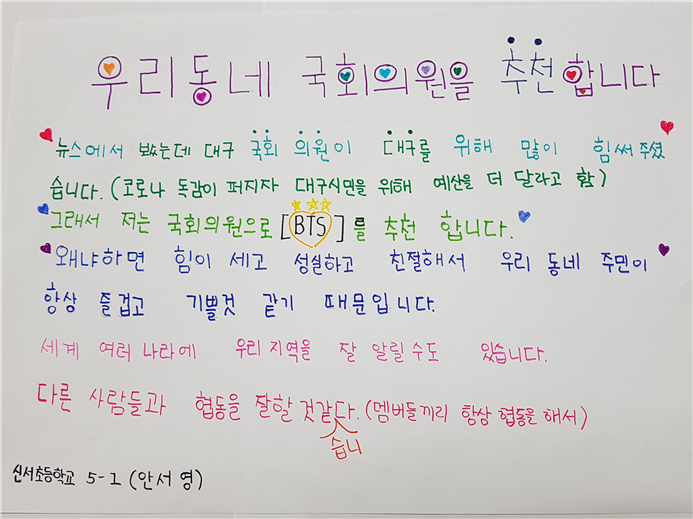 우리동네 국회의원을 추천합니다
뉴스에서 봤는데 대구 국회 의원이 대구를 위해 많이 힘써주셨
습니다. (코로나 독감이 퍼지자 대구시민을 위해 예산을 더 달라고 함)
그래서 저는 국회의원으로 [BTS]를 추천 합니다.
왜냐하면 힘이 세고 성실하고 친절해서 우리 동네 주민이
항상 즐겁고 기쁠것 같기 때문입니다.
세계 여러 나라에 우리 지역을 잘 알릴수도 있습니다.
다른 사람들과 협동을 잘할 것같다. (멤버들끼리 항상 협동을 해서)
습니
신서초등학교 5-1 (안서영)